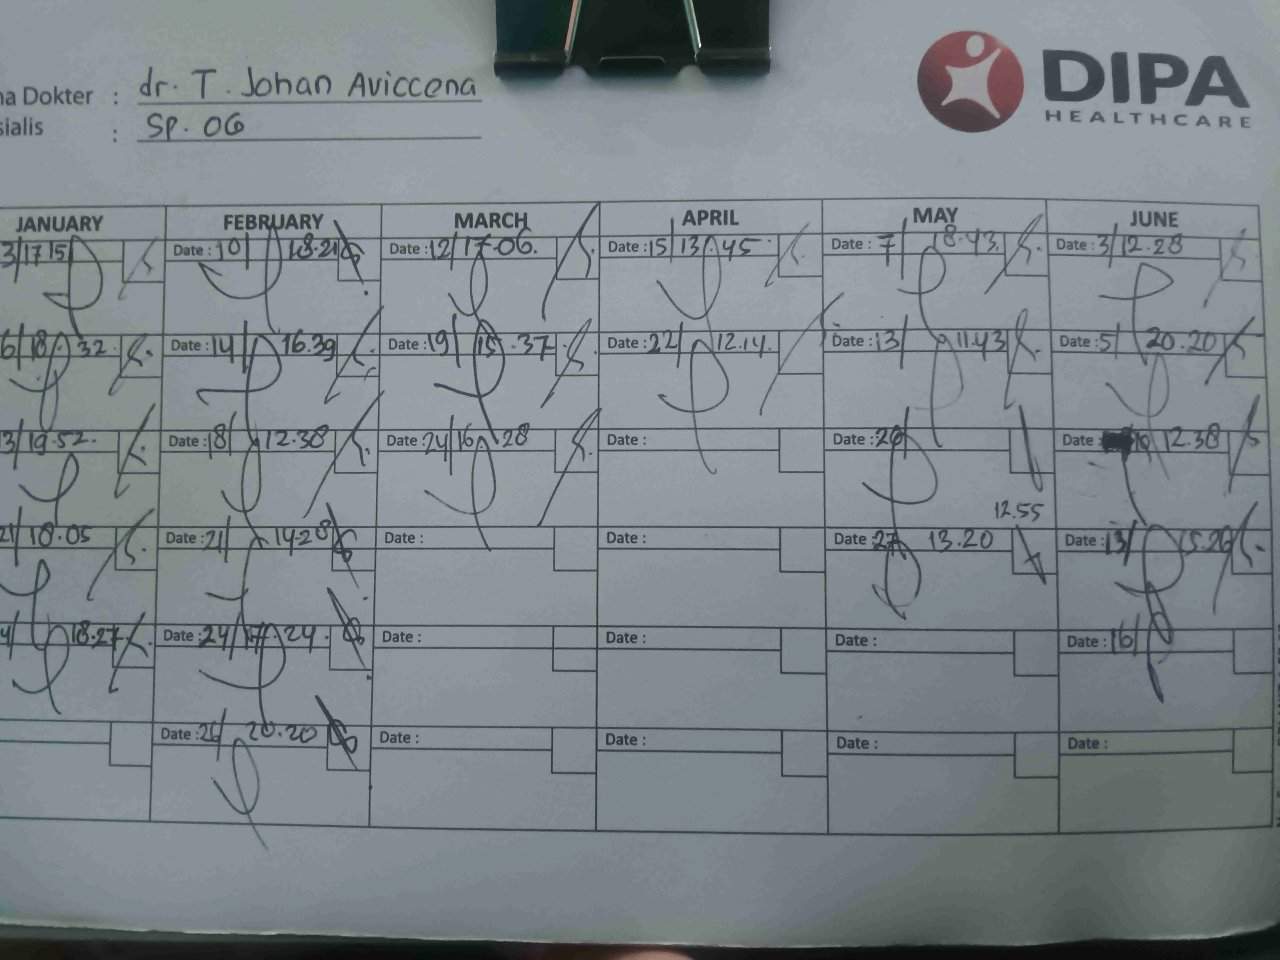 DIPA
HEALTHCARE
na Dokter : dr. T. Johan Aviccena
sialis : Sp. OG
JANUARY FEBRUARY MARCH APRIL MAY JUNE
3/17 15 Date : 10/ 18.21 Date : 12/17.06. Date : 15/13.45 Date : 7/ 18.43. Date : 3/12.28
6/18.32. Date : 14/ 16.39 Date : 19/ 15.37 Date : 22/ 12.14. Date : 13/ 11.43 Date : 5/ 20.20
3/19.52. Date : 18/ 12.38 Date : 24/16.28 Date : Date : 26/ Date : 12.38
12.55
21/18.05 Date : 21/ 14.28 Date : Date : Date : 27 13.20 Date : 13/ 15.26
4/ 18.27 Date : 24/17.24. Date : Date : Date : Date : 16/
Date : 26/ 20.20 Date : Date : Date : Date :